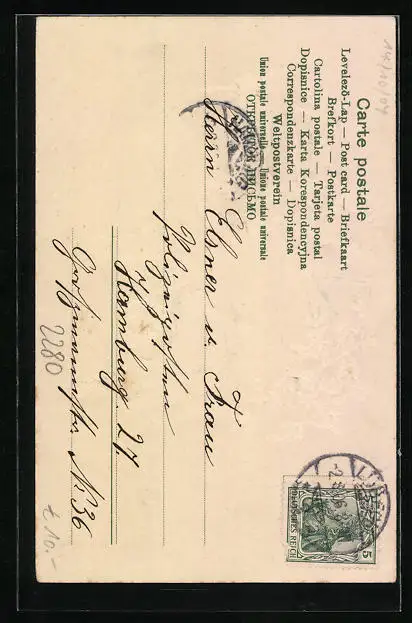 Carte postale
Levelező-Lap — Post card — Briefkaart
Brefkort — Postkarte
Cartolina postale — Tarjeta postal
Dopisnice — Karta Korespondencyjna
Correspondenzkarte — Dopisnica
Weltpostverein
Union postale universelle — Unione postale universale
ОТКРЫТОЕ ПИСЬМО
Herrn Elsner u. Frau
Hamburg. 27
No 36
2280
5
DEUTSCHES REICH